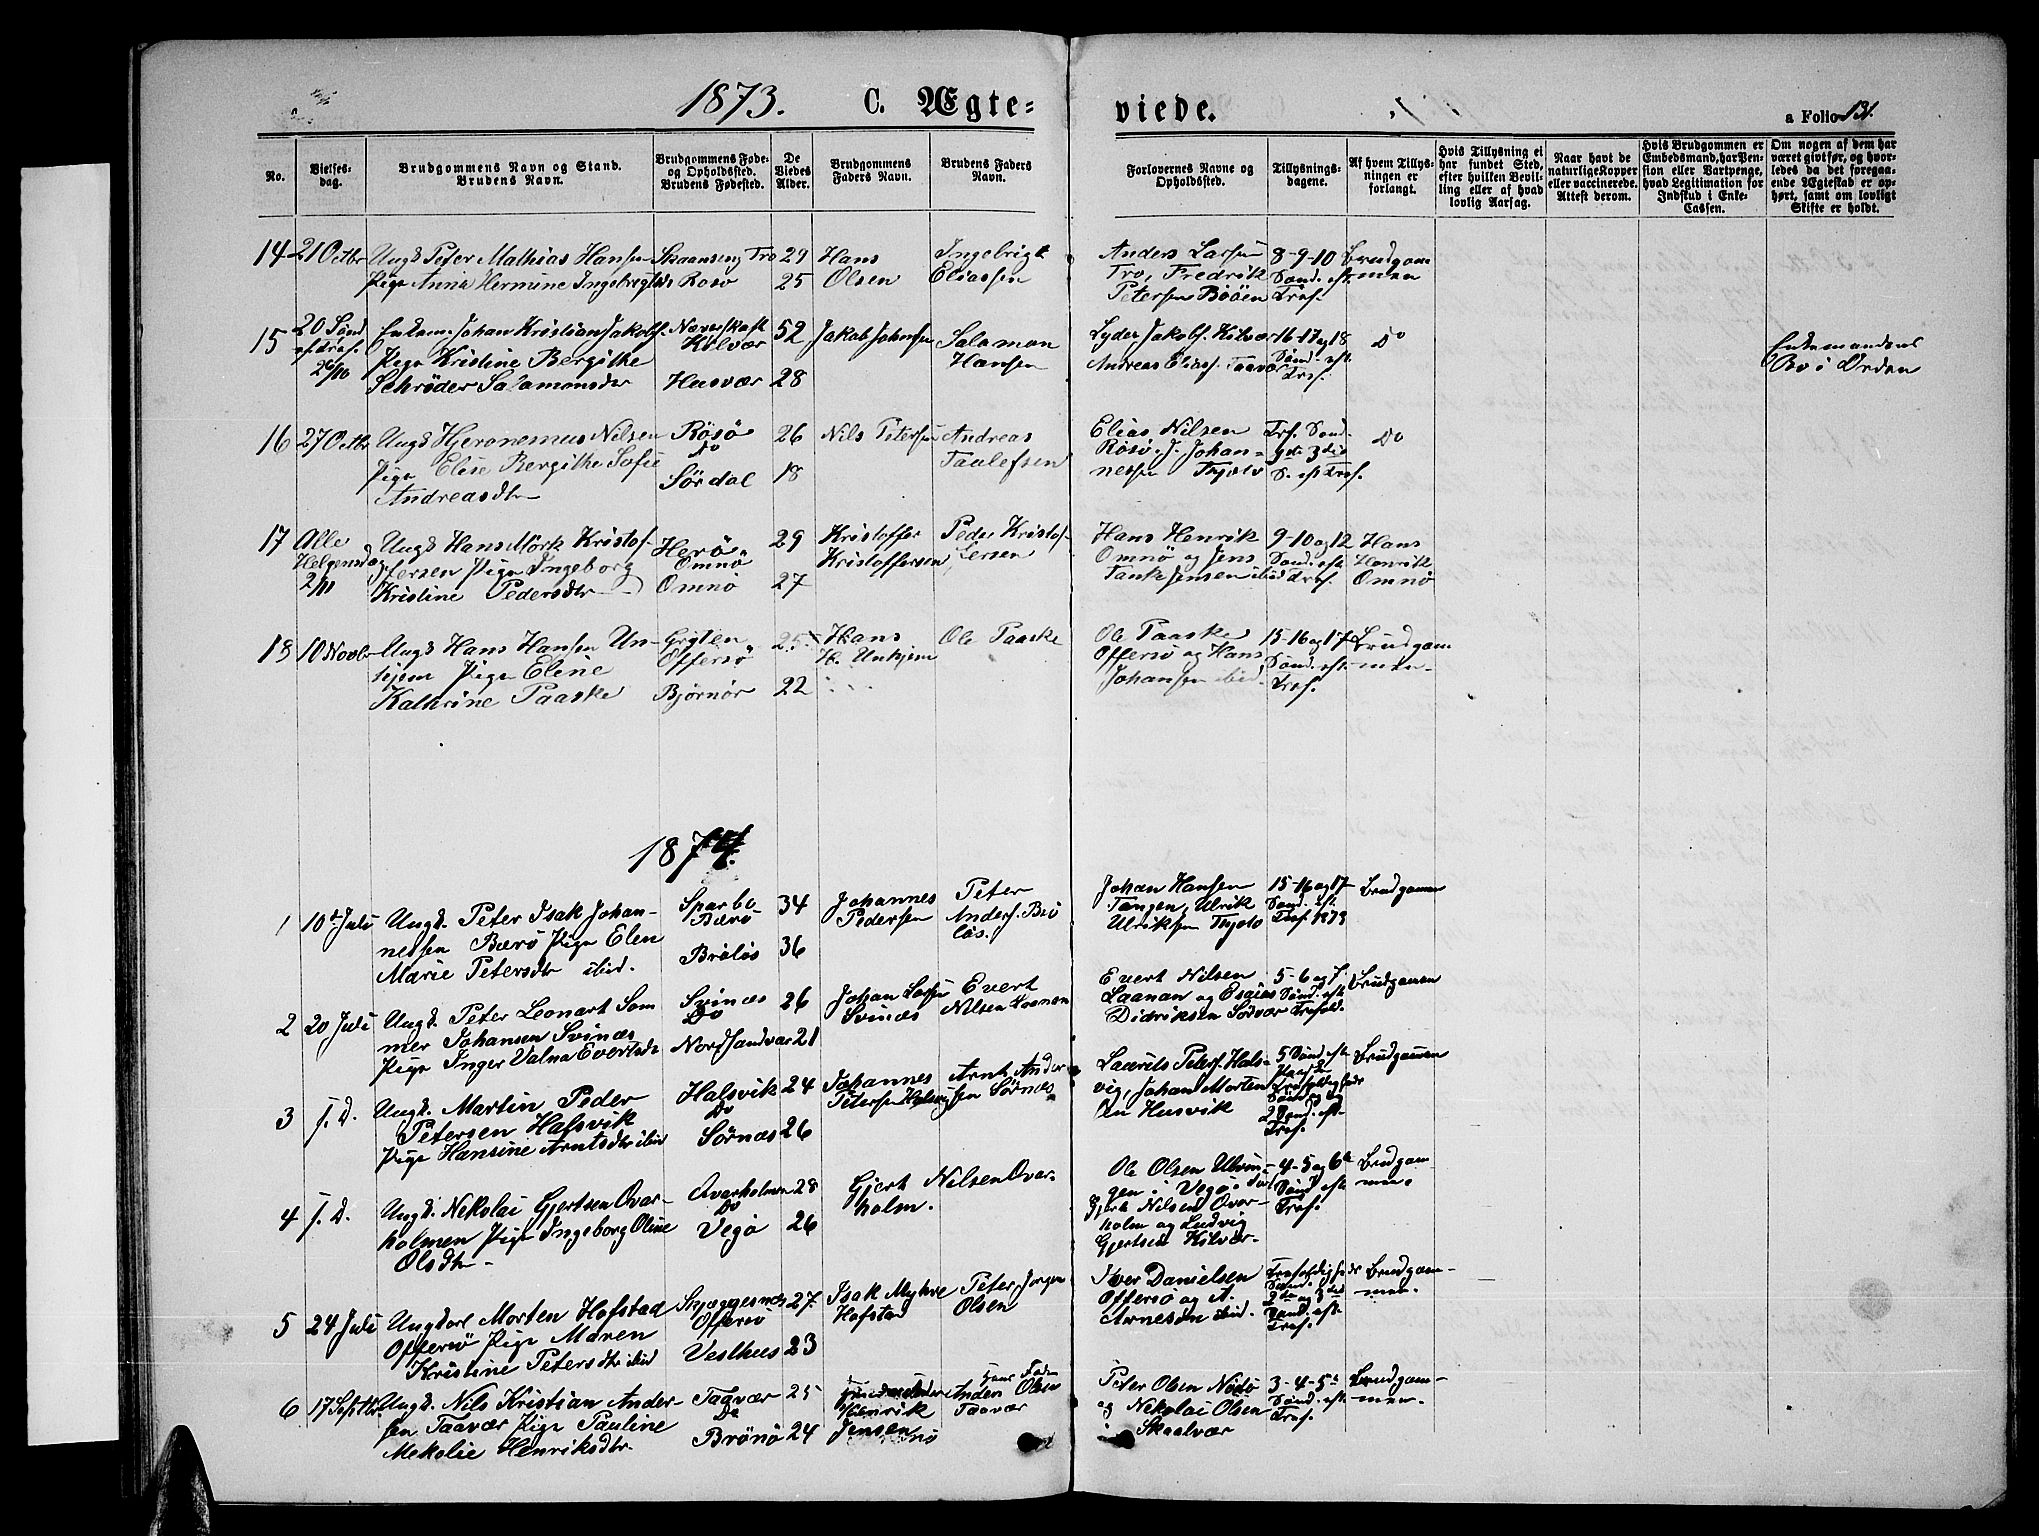 1873. C. Ægte=
viede.
a Folio 131.
No.
Vielses-
dag.
Brudgommens Navn og Stand.
Brudens Navn.
Brudgommens Føde-
og Opholdssted.
Brudens Fødested.
De
Viedes
Alder.
Brudgommens
Faders Navn.
Brudens Faders
Navn.
Forlovernes Navne og
Opholdssted.
Tillysnings-
dagene.
Af hvem Tillys-
ningen er
forlangt.
Hvis Tillysning ei
har fundet Sted,
efter hvilken Bevil-
ling eller af hvad
lovlig Aarsag.
Naar havt de
naturlige Kopper
eller vaccinerede.
Attest derom.
Hvis Brudgommen er
Embedsmand, har Pen-
sion eller Vartpenge,
hvad Legitimation for
Indskud i Enke-
Cassen.
Om nogen af dem har
været givtfør, og hvor-
ledes da det foregaa-
ende Ægteskab er op-
hørt, samt om lovligt
Skifte er holdt.
14 21 Octbr Ungk Peter Mathias Hansen
Pige Anna Hermine Ingebrigtsdr
Tro
Rosø
29
25
Hans
Olsen
Ingebrigt
Eliassen
Anders Larsen
Tro, Fredrik
Petersen Bööen
8-9-10
Sönd. eft.
Tref.
Brudgom
men
15 20 Sønd
ef. Tref.
26/10
Enkem. Johan Kristian Jakobs.
Pige Kristine Bergithe
Schrøder Salamonsdtr
Kilvær
Husvær
52
28
Jakob Johnsen
Salamon
Hansen
Lyder Jakobs. Kilvær
Andreas Elias. Taavær
16-17 og 18
Sönd. eft.
Tref.
Do
Enkemandens
Bo i Orden
16 27 Octbr Ungk Hjeronemus Nilsen
Pige Elise Bergithe Sofie
Andreasdtr
Røsø
Do
Sørdal
26
18
Nils Petersen
Andreas
Taulefsen
Elias Nilsen
Røsø. J. Johan-
nessen Thjøtø
Trf. Sönd.
2de 3die
S. eft Tref.
Do
17 Alle
Helgensdag
2/11
Ungk Hans Mørk Kristof-
fersen Pige Ingeborg
Kristine Pedersdtr
Herø
Omnø
Omnø
29
27
Kristoffer
Kristoffersen
Peder Kristof-
fersen
Hans Henrik
Omnø og Jens
Tank Jensen ibid
9-10 og 12
Sönd. eft
Tref.
Hans
Henrik
Omnø
18 10 Novbr Ungk Hans Hansen Un-
hjem Pige Eline
Kathrine Paaske
Grytten
Offersø
Bjørnør
25
22
Hans
H. Unhjem
Ole Paaske
Ole Paaske
Offersø og Hans
Johansen ibid.
15-16 og 17
Sönd. eft.
Tref.
Brudgom
men
1874.
1 10de Juli Ungk. Peter Isak Johan-
nessen Bærø Pige Elen
Marie Petersdtr ibid.
Sparbo
Bærø
Brøløs
34
36
Johannes
Pedersen
Peter
Anders. Brø
løs.
Johan Hansen
Tangen, Ulrik
Ulriksen Thjøtø
15-16 og 17
Sönd. eft
Tref 1873
Brudgommen
2 20 Juli Ungk. Peter Leonart Som
mer Johansen Svinæs
Pige Inger Valna Evertsdr
Svinæs
Do
Nordsandvær
26
21
Johan Larsen
Svinæs
Evert
Nilsen Laanan
Evert Nilsen
Laanan og Esaias
Didriksen Sørvær
5-6 og 7
Sönd. eft
Trefold.
Brudgommen
3 s. D. Ungk. Martin Peder
Petersen Halsvik
Pige Hansine Arntsdtr ibid
Halsvik
Do
Sørnæs
24
26
Johannes
Petersen Halsvig
Arnt Ander
sen Sørnæs
Laurits Peters. Hals-
vig, Johan Morten
sen Husvik
5 Sönd. eft
Paaske
Trefoldigheds
Sönd. og
2 Sönd. eft.
Tref.
Brudgommen
4 s. D. Ungk. Nikolai Gjertsen Ovar-
holmen Pige Ingeborg Oline
Olsdtr
Ovarholmen
Do
Vegø
28
26
Gjert Nilsen Ovar-
holm.
Ole Olsen Ulvin-
gen i Vegø,
Gjert Nilsen Ovar-
holm og Ludvig
Gjertsen Kilvær
4-5 og 6te
Sönd. eft
Tref.
Brudgom-
men.
5 24 Juli Ungkarl Morten Hofstad
Offersø Pige Maren
Kristine Petersdtr ibid
Skjæggesnes
Offersø
Vesthus
27
23
Isak Myhre
Hofstad
Peter Jørgen
Olsen
Iver Danielsen
Offersø og A.
Arnesen ibid.
Trefoldigheds
Sönd.
2den og 3die
Sönd. eft.
Tref.
Brudgom-
men.
6 17 Septbr. Ungk. Nils Kristian Ander-
sen Taavær Pige Pauline
Mekalie Henriksdtr
Taavær
Do
Brönö
25
24
Henrik
Jensen
hans Fader
Anders Olsen
Taavær
Peter Olsen Nodö
og Nikolai Olsen
i Skaalvær
3-4-5te
Sönd. eft.
Tref.
Brudgom-
men.